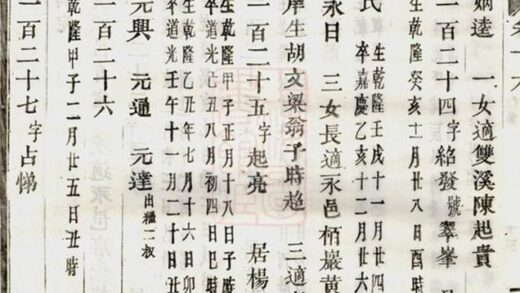 一女適雙溪陳起貴
一百二十四字紹發號翠峯
生乾隆癸亥十一月廿八日酉時
氏生乾隆壬戌十一月廿四
卒嘉慶乙亥十二月廿六
永日 三女長適永邑栢巖黃
生胡文奧翁子時超 三適
一百二十五字起亮 居楊
生乾隆甲子正月十八日子時
卒道光己丑八月初四日巳時
生乾隆乙丑年七月十六日卯
卒道光壬午十一月二十日
元興 元通 元達出繼叔
一百二十六
乾隆甲子二月廿五日丑時
一百二十七字占悌